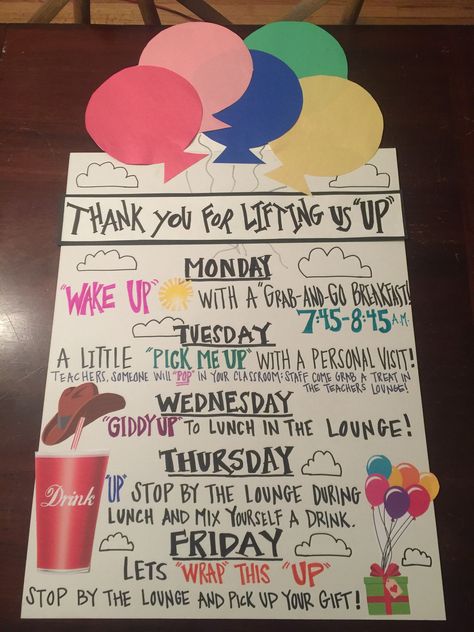 THANK YOU FOR LIFTING US "UP"
MONDAY
"WAKE UP" WITH A "GRAB-AND-GO BREAKFAST!
7:45-8:45 A.M.
TUESDAY
A LITTLE "PICK ME UP" WITH A PERSONAL VISIT!
TEACHERS, SOMEONE WILL "POP" IN YOUR CLASSROOM; STAFF COME GRAB A TREAT IN
THE TEACHERS LOUNGE!
WEDNESDAY
"GIDDY UP" TO LUNCH IN THE LOUNGE!
THURSDAY
"UP" STOP BY THE LOUNGE DURING
LUNCH AND MIX YOURSELF A DRINK.
Drink
FRIDAY
LETS "WRAP" THIS "UP"
STOP BY THE LOUNGE AND PICK UP YOUR GIFT!